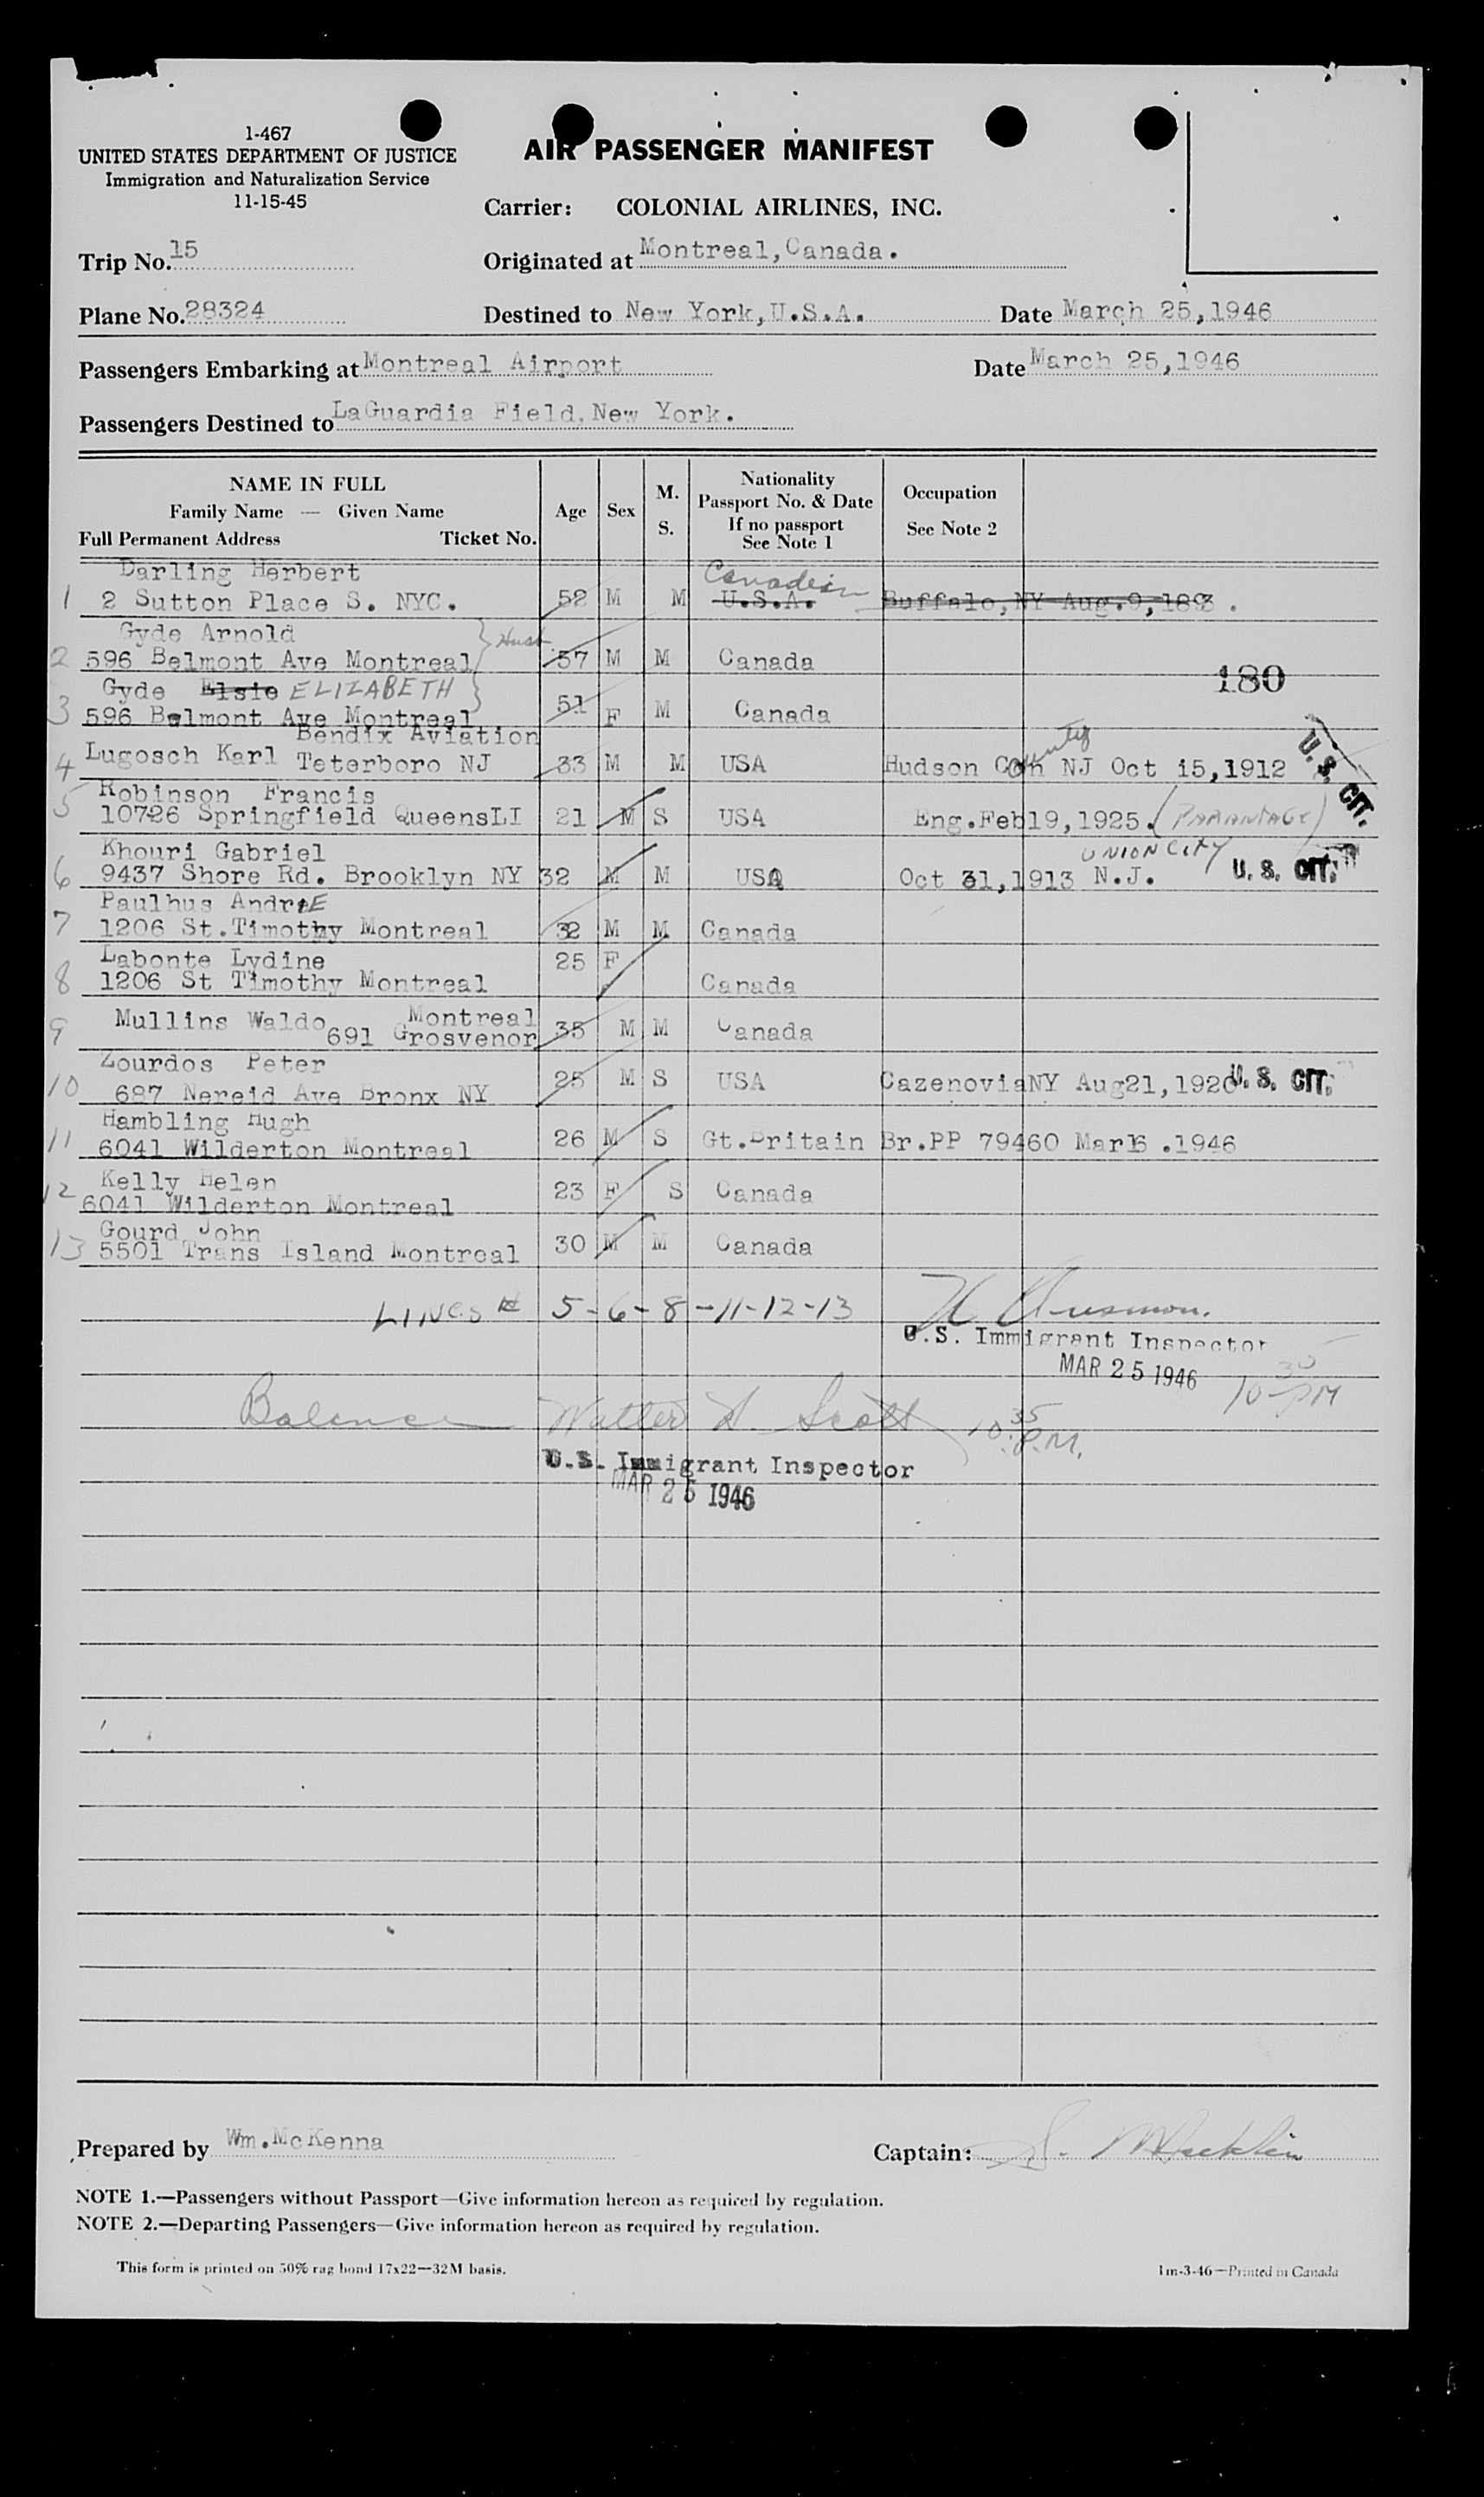 1-467
UNITED STATES DEPARTMENT OF JUSTICE
Immigration and Naturalization Service
11-15-45
AIR PASSENGER MANIFEST
Carrier: COLONIAL AIRLINES, INC.
Trip No. 15
Originated at Montreal, Canada.
Plane No. 28324
Destined to New York, U.S.A.
Date March 25, 1946
Passengers Embarking at Montreal Airport
Date March 25, 1946
Passengers Destined to LaGuardia Field, New York.
NAME IN FULL
Family Name — Given Name
Full Permanent Address Ticket No.
Age
Sex
M.
S.
Nationality
Passport No. & Date
If no passport
See Note 1
Occupation
See Note 2
Darling Herbert Canadian
1 2 Sutton Place S. NYC. 52 M M U.S.A. Buffalo, NY Aug. 9, 1893.
Gyde Arnold
2 596 Belmont Ave Montreal 57 M M Canada
180
Gyde Elsie ELIZABETH
3 596 Belmont Ave Montreal 51 F M Canada
Bendix Aviation
4 Lugosch Karl Teterboro NJ 33 M M USA Hudson County NJ Oct 15, 1912 U. S. CIT.
5 Robinson Francis
10726 Springfield Queens LI 21 M S USA Eng. Feb 19, 1925. (PARANTAGE)
Khouri Gabriel UNION CITY
6 9437 Shore Rd. Brooklyn NY 32 M M USA Oct 31, 1913 N.J. U. S. CIT.
Paulhus AndrE
7 1206 St. Timothy Montreal 32 M M Canada
Labonte Lydine 25 F
8 1206 St Timothy Montreal Canada
9 Mullins Waldo Montreal
691 Grosvenor 35 M M Canada
Zourdos Peter
10 687 Nereid Ave Bronx NY 25 M S USA Cazenovia NY Aug 21, 1920 U. S. CIT.
Hambling Hugh
11 6041 Wilderton Montreal 26 M S Gt. Britain Br. PP 79460 Mar 16 . 1946
Kelly Helen
12 6041 Wilderton Montreal 23 F S Canada
Gourd John
13 5501 Trans Island Montreal 30 M M Canada
LINES 5-6-8-11-12-13
U.S. Immigrant Inspector
MAR 25 1946
10 35 PM
Balance Walter Scott 10 35 P.M.
U.S. Immigrant Inspector
MAR 25 1946
Prepared by Wm. McKenna
Captain:
NOTE 1.—Passengers without Passport—Give information hereon as required by regulation.
NOTE 2.—Departing Passengers—Give information hereon as required by regulation.
This form is printed on 50% rag bond 17x22—32M basis.
1m-3-46—Printed in Canada